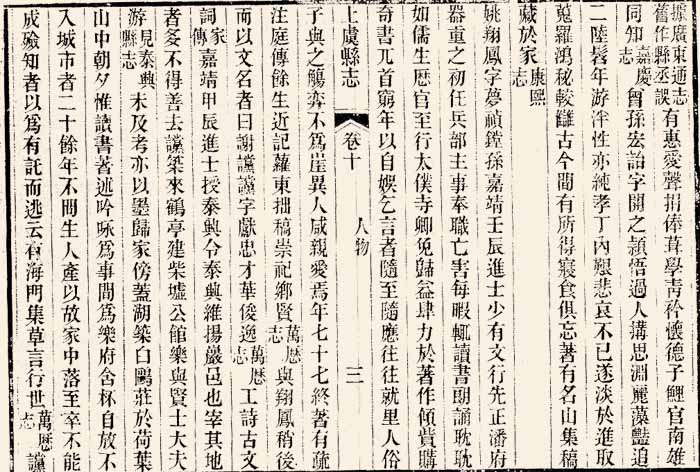 據廣東通志舊作縣丞誤有惠愛聲捐俸葺學靑衿懷德子鯉官南雄
同知嘉慶志曾孫宏詒字開之穎悟過人搆思淵麗藻豔追
二陸髫年游泮性亦純孝丁內艱悲哀不已遂淡於進取
蒐羅鴻秘較讎古今間有所得寢食俱忘著有名山集稿
藏於家康熙志
姚翔鳳字夢禎鏜孫嘉靖壬辰進士少有文行先正潘府
器重之初任兵部主事奉職亡害每暇輒讀書朗誦耽耽
如儒生歷官至行太僕寺卿免歸益肆力於著作傾貲購
奇書兀首窮年以自娛乞言者隨至隨應往往就里人俗
上虞縣志 卷十 人物 三
子與之觴弈不爲崖異人咸親愛焉年七十七終著有疏
注庭傳餘生近記蘿東拙稿崇祀鄉賢萬厯志與翔鳳稍後
而以文名者曰謝讜讜字獻忠才華俊逸萬厯志工詩古文
詞家志嘉靖甲辰進士授泰興令泰興維揚嚴邑也宰其地
者多不得善去讜築來鶴亭建柴墟公館樂與賢士大夫
游見泰興縣志未及考亦以墨歸家傍蓋湖築白鷗莊於荷葉
山中朝夕惟讀書著述吟咏爲事間爲樂府含杯自放不
入城市者二十餘年不問生人產以故家中落至卒不能
成殮知者以爲有託而逃云有海門集草言行世萬厯志讜